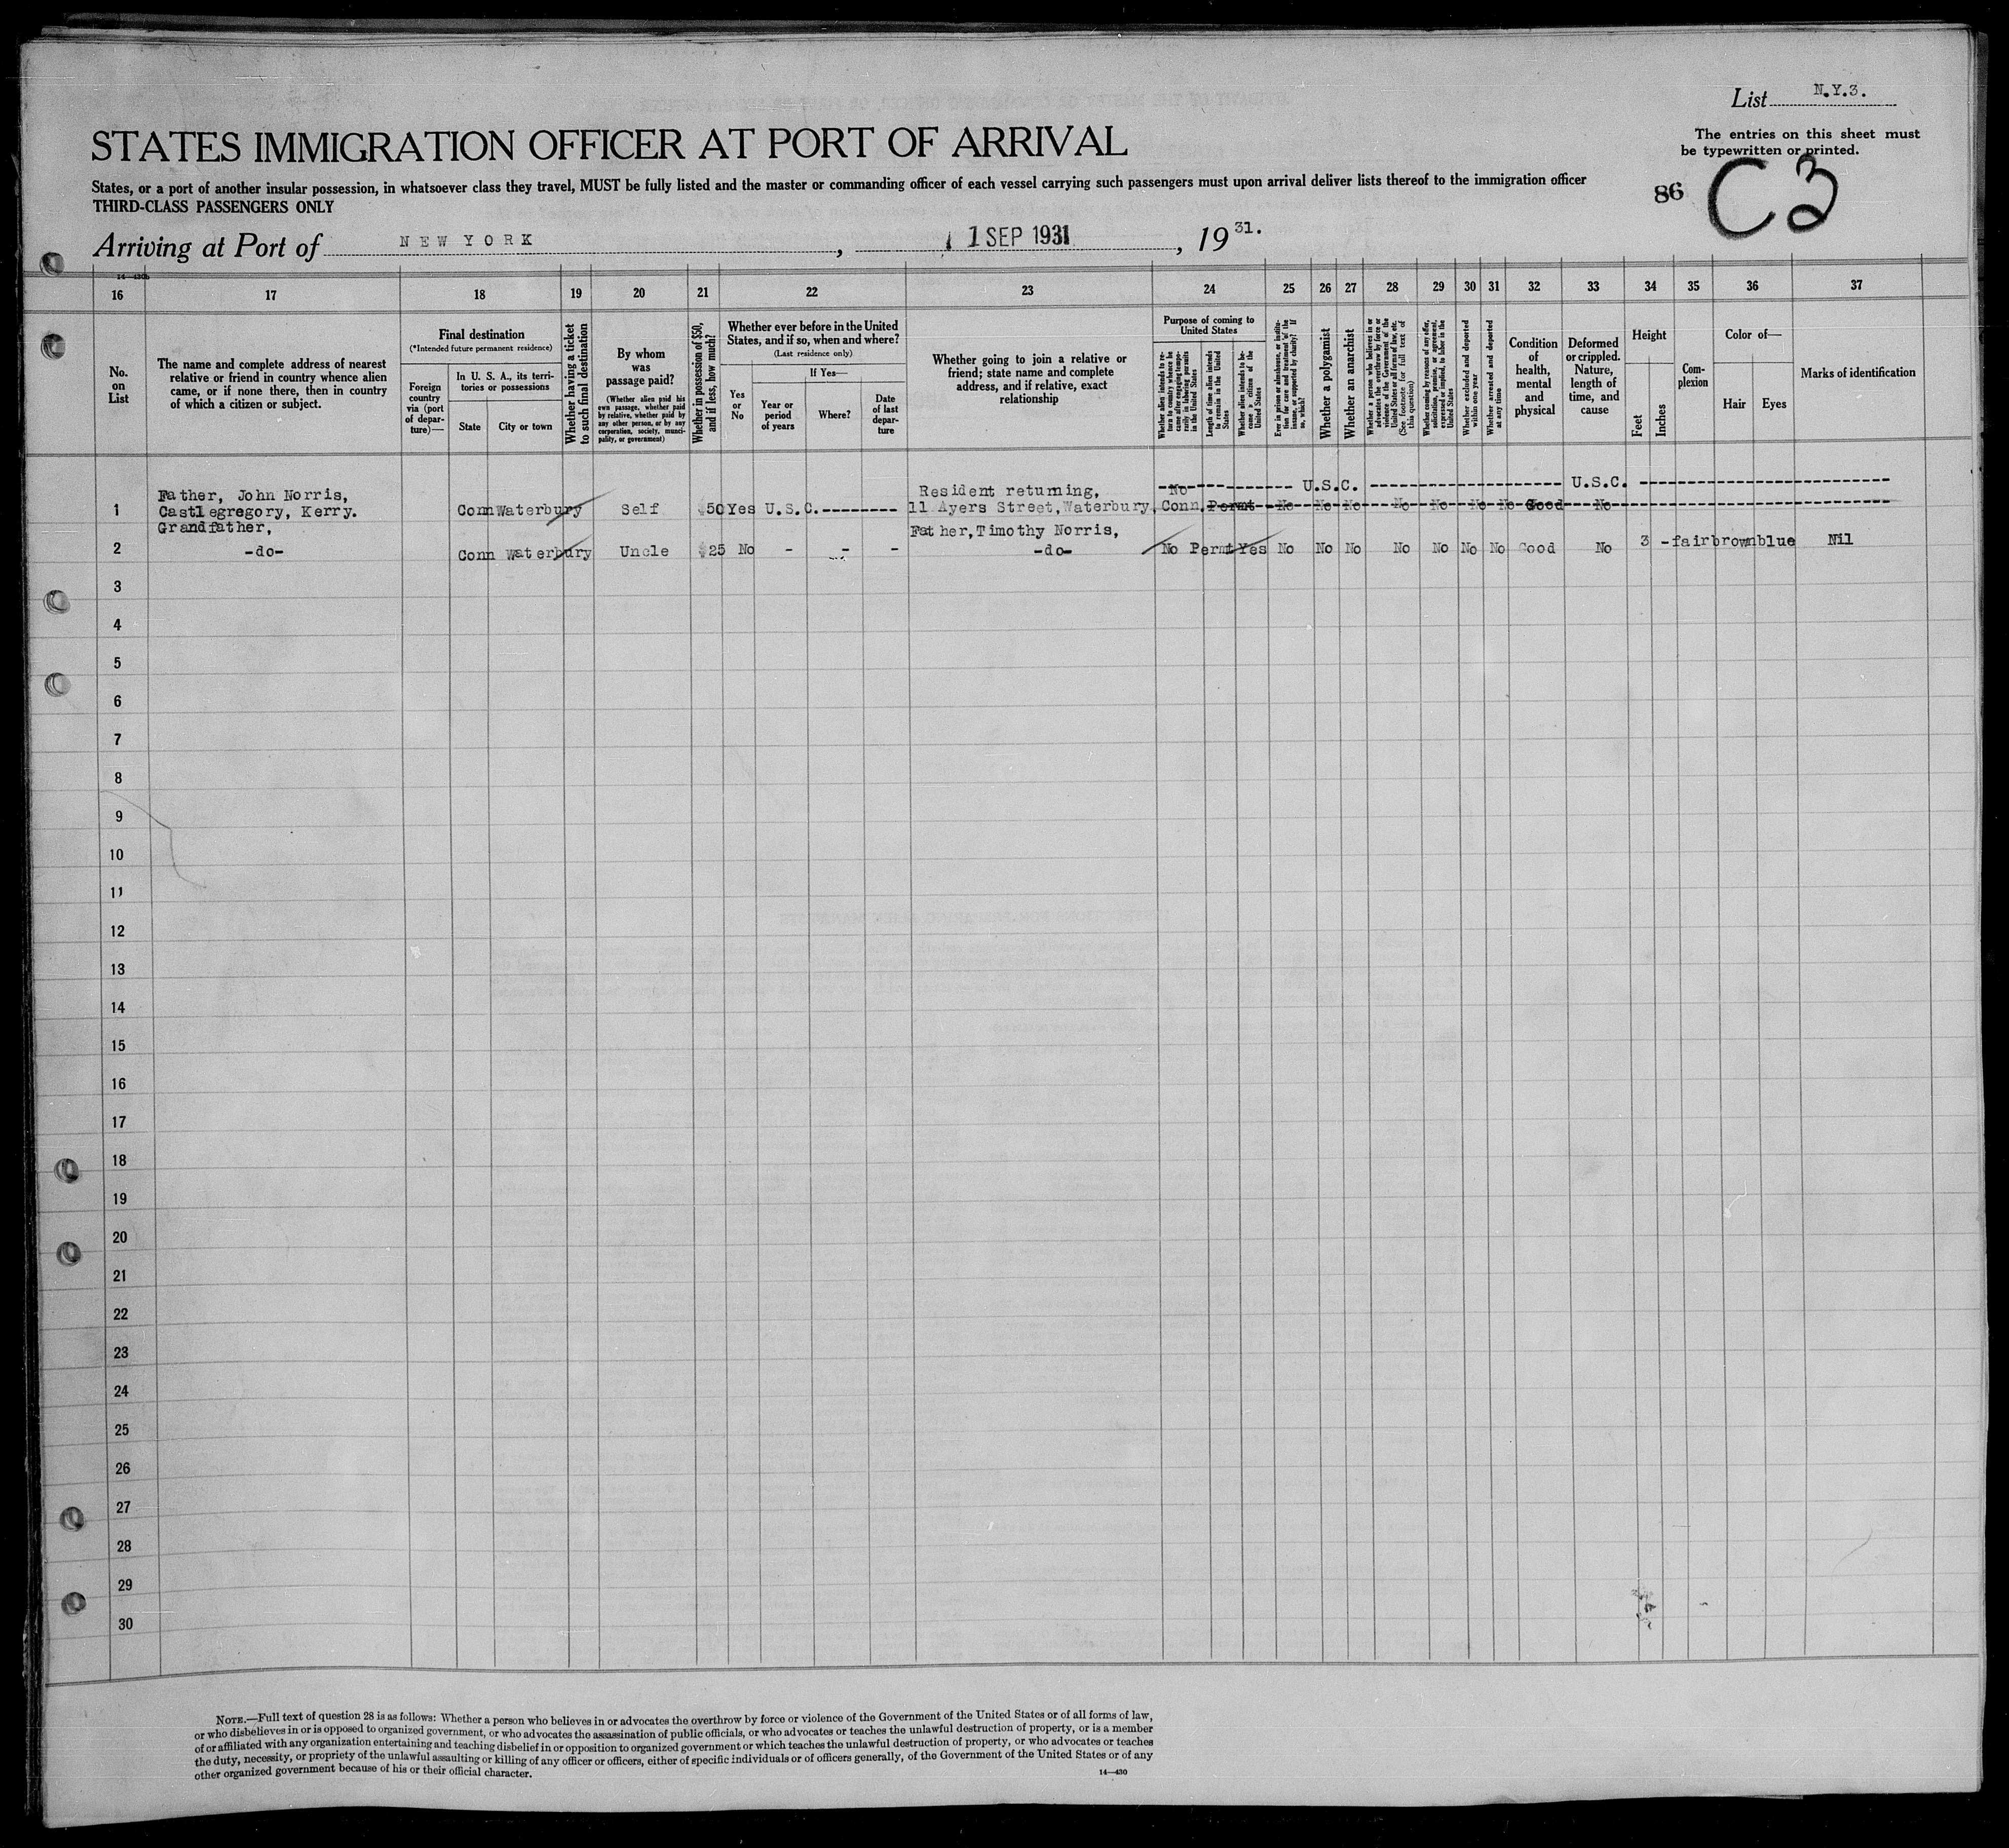 List N.Y.3.
STATES IMMIGRATION OFFICER AT PORT OF ARRIVAL
The entries on this sheet must
be typewritten or printed.
States, or a port of another insular possession, in whatsoever class they travel, MUST be fully listed and the master or commanding officer of each vessel carrying such passengers must upon arrival deliver lists thereof to the immigration officer
THIRD-CLASS PASSENGERS ONLY
86 C3
Arriving at Port of NEW YORK, 1 SEP 1931, 1931.
14—430b
16 17 18 19 20 21 22 23 24 25 26 27 28 29 30 31 32 33 34 35 36 37
No. on List
The name and complete address of nearest
relative or friend in country whence alien
came, or if none there, then in country
of which a citizen or subject.
Final destination
(*Intended future permanent residence)
Foreign
country
via (port
of depar-
ture)—
In U. S. A., its terri-
tories or possessions
State
City or town
Whether having a ticket
to such final destination
By whom
was
passage paid?
(Whether alien paid his
own passage, whether paid
by relative, whether paid by
any other person, or by any
corporation, society, munici-
pality, or government)
Whether in possession of $50,
and if less, how much?
Whether ever before in the United
States, and if so, when and where?
(Last residence only)
Yes
or
No
If Yes—
Year or
period
of years
Where?
Date
of last
depar-
ture
Whether going to join a relative or
friend; state name and complete
address, and if relative, exact
relationship
Purpose of coming to
United States
Whether alien intends to re-
turn to country whence he
came after engaging tempo-
rarily in laboring pursuits
in the United States
Length of time alien intends
to remain in the United
States
Whether alien intends to be-
come a citizen of the
United States
Ever in prison or almshouse, or institu-
tion for care and treatment of the
insane, or supported by charity? If
so, which?
Whether a polygamist
Whether an anarchist
Whether a person who believes in or
advocates the overthrow by force or
violence of the Government of the
United States or all forms of law, etc.
(See footnote for full text of
this question)
Whether coming by reason of any offer,
solicitation, promise, or agreement,
expressed or implied, to labor in the
United States
Whether excluded and deported
within one year
Whether arrested and deported
at any time
Condition
of
health,
mental
and
physical
Deformed
or crippled.
Nature,
length of
time, and
cause
Height
Feet
Inches
Com-
plexion
Color of—
Hair
Eyes
Marks of identification
Father, John Norris, Resident returning, -No------------- U.S.C. -------------------- U.S.C. --------------------------
1 Castlegregory, Kerry. Conn Waterbury Self $50 Yes U.S.C.--------- 11 Ayers Street, Waterbury, Conn. Permt No No No No No No No Good No
Grandfather, Father, Timothy Norris,
2 -do- Conn Waterbury Uncle $25 No - - - -do- No Permt Yes No No No No No No No Good No 3 - fair brown blue Nil
3
4
5
6
7
8
9
10
11
12
13
14
15
16
17
18
19
20
21
22
23
24
25
26
27
28
29
30
NOTE.—Full text of question 28 is as follows: Whether a person who believes in or advocates the overthrow by force or violence of the Government of the United States or of all forms of law,
or who disbelieves in or is opposed to organized government, or who advocates the assassination of public officials, or who advocates or teaches the unlawful destruction of property, or is a member
of or affiliated with any organization entertaining and teaching disbelief in or opposition to organized government or which teaches the unlawful destruction of property, or who advocates or teaches
the duty, necessity, or propriety of the unlawful assaulting or killing of any officer or officers, either of specific individuals or of officers generally, of the Government of the United States or of any
other organized government because of his or their official character.
14—430